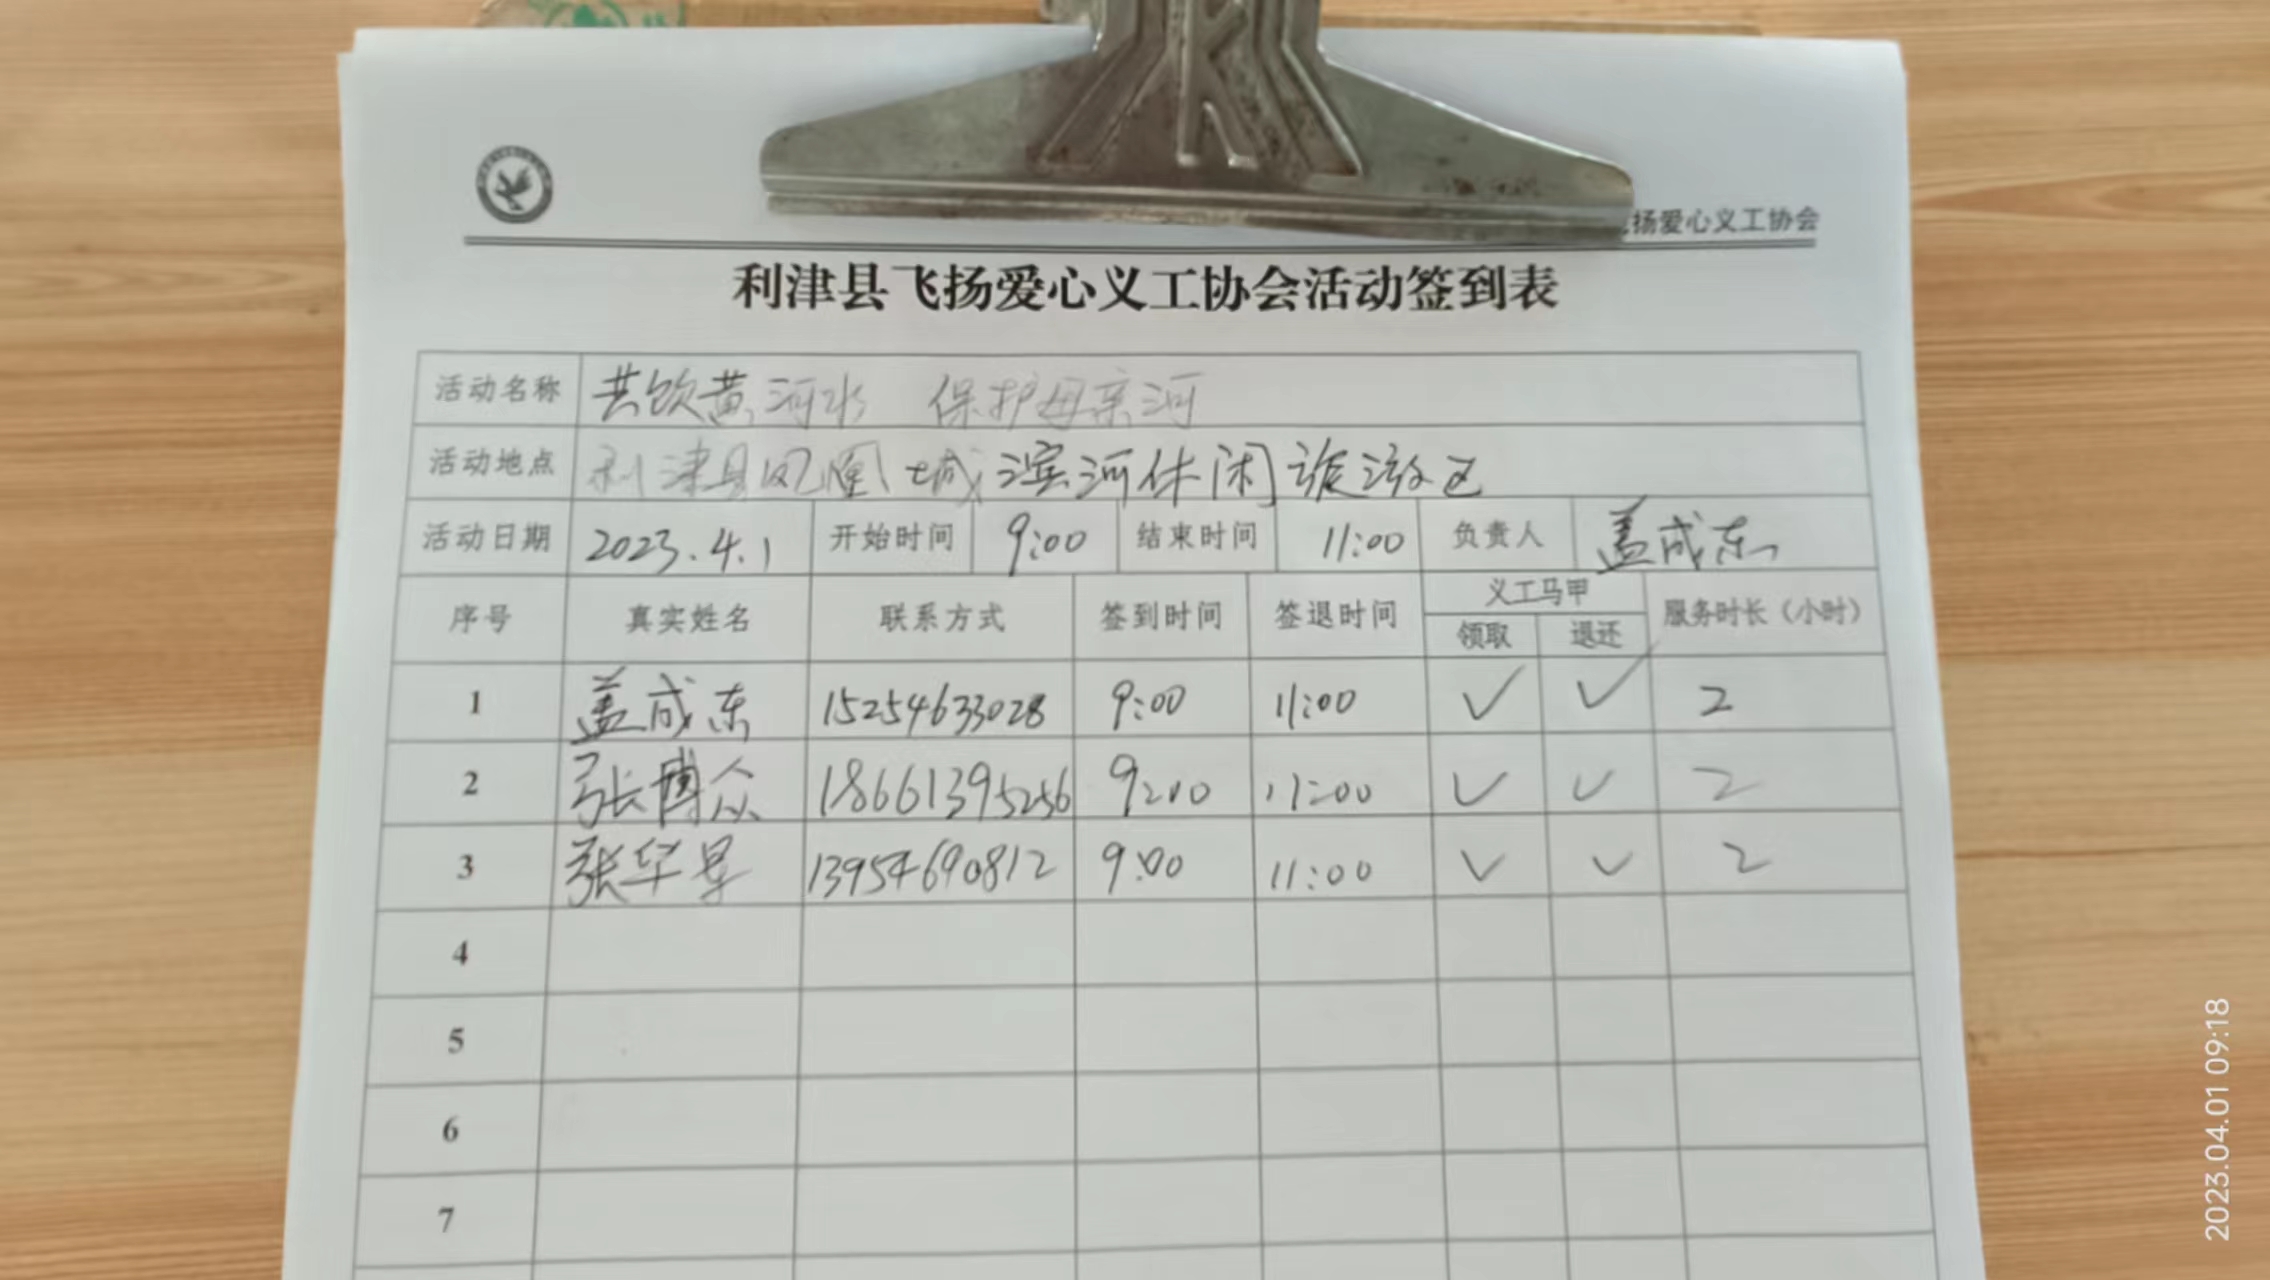 扬爱心义工协会
利津县飞扬爱心义工协会活动签到表
活动名称 共饮黄河水 保护母亲河
活动地点 利津县凤凰城滨河休闲旅游区
活动日期 2023.4.1 开始时间 9:00 结束时间 11:00 负责人 盖成东
序号 真实姓名 联系方式 签到时间 签退时间 义工马甲 服务时长（小时）
领取 退还
1 盖成东 15254633028 9:00 11:00 ✓ ✓ 2
2 张博众 18661395256 9:00 11:00 ✓ ✓ 2
3 张华 13954690812 9:00 11:00 ✓ ✓ 2
4
5
6
7
2023.04.01 09:18